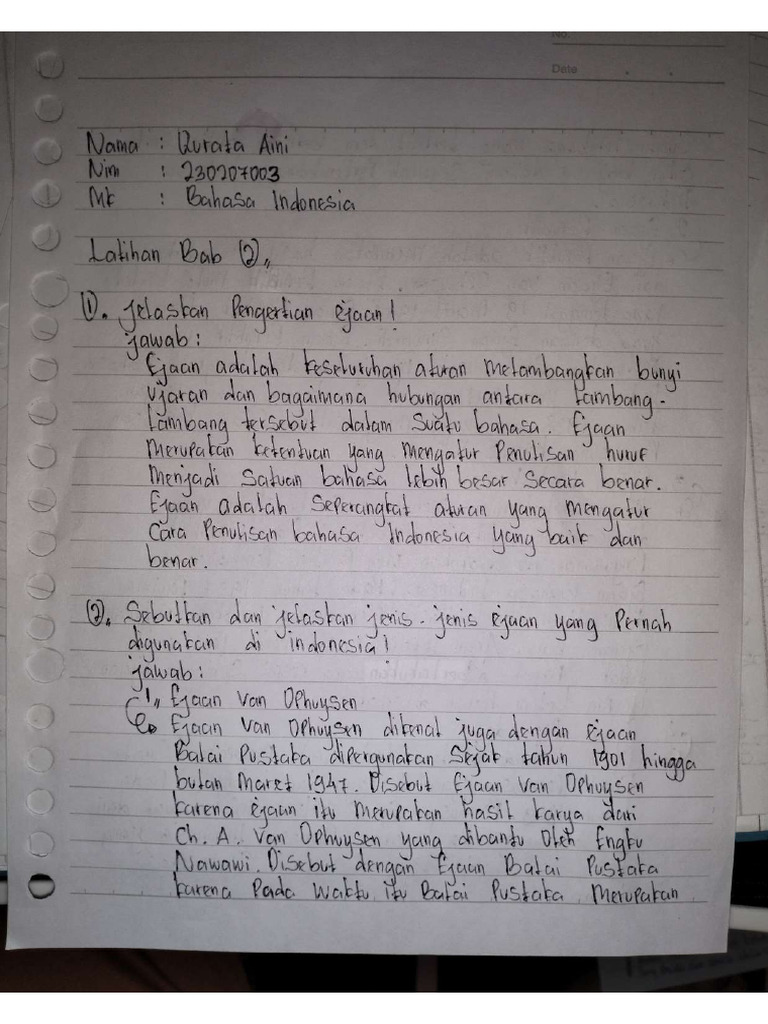 No.
Date
Nama : Qurata Aini
Nim : 230207003
Mk : Bahasa Indonesia
Latihan Bab (2),,
(1). Jelaskan Pengertian Ejaan!
Jawab :
Ejaan adalah keseluruhan aturan melambangkan bunyi
Ujaran dan bagaimana hubungan antara Lambang-
Lambang tersebut dalam Suatu bahasa. Ejaan
Merupakan ketentuan yang mengatur Penulisan huruf
Menjadi Satuan bahasa lebih besar Secara benar.
Ejaan adalah Seperangkat aturan yang mengatur
Cara Penulisan bahasa Indonesia yang baik dan
benar.
(2). Sebutkan dan jelaskan jenis-jenis Ejaan yang Pernah
digunakan di indonesia!
Jawab :
1,, Ejaan Van Ophuysen
Ejaan Van Ophuysen dikenal juga dengan Ejaan
Balai Pustaka dipergunakan Sejak tahun 1901 hingga
bulan Maret 1947. Disebut Ejaan Van Ophuysen
karena Ejaan itu Merupakan hasil karya dari
Ch. A. Van Ophuysen yang dibantu Oleh Engku
Nawawi. Disebut dengan Ejaan Balai Pustaka
karena Pada Waktu itu Balai Pustaka Merupakan